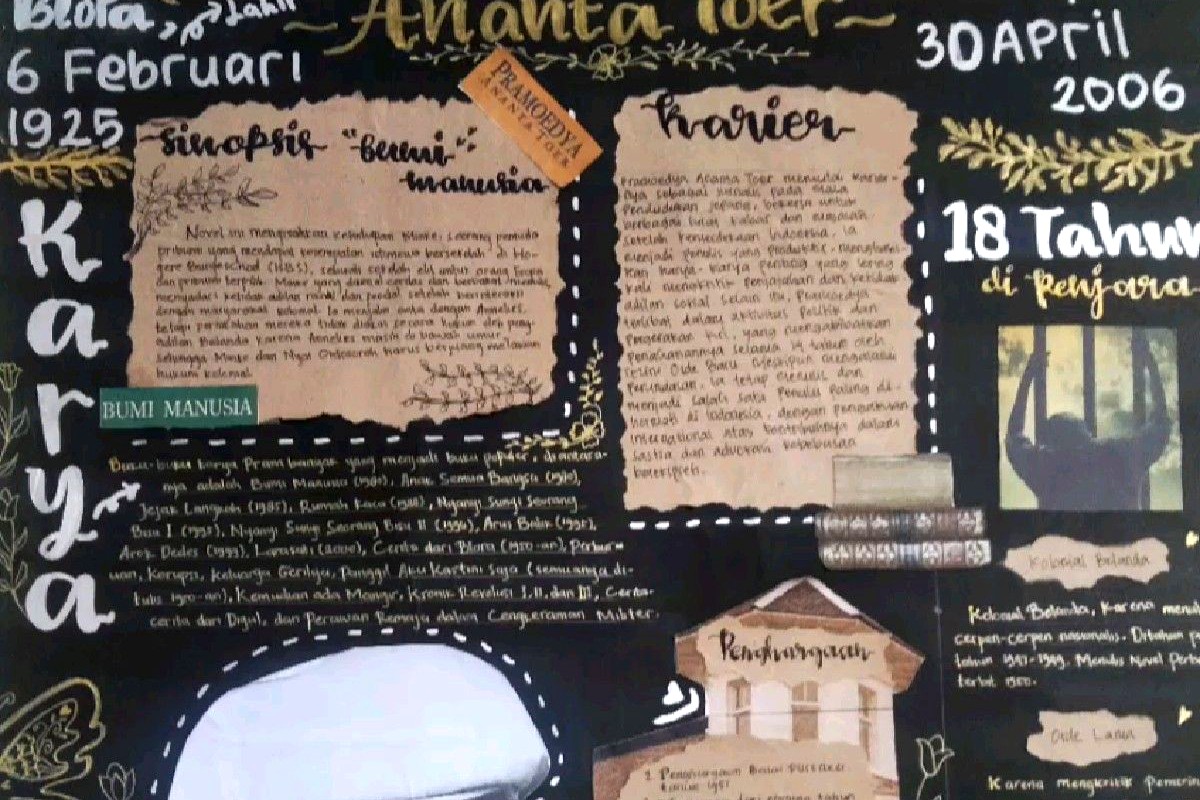 Blora, Lahir
6 Februari
1925
~Ananta Toer~
30 April
2006
PRAMOEDYA
ANANTA TOER
Sinopsis "Bumi
Manusia
Novel ini mengisahkan kehidupan Minke, seorang pemuda
pribumi yang mendapat kesempatan istimewa bersekolah di Ho-
gere Burgerschool (H.B.S), sebuah sekolah elit untuk orang Eropa
dengan masyarakat kolonial. Ia menjalin cinta dengan Annelies,
adilan Belanda karena Annelies masih di bawah umur,
sehingga Minke dan Nyai Ontosoroh harus berjuang melawan
hukum kolonial.
BUMI MANUSIA
Karier
Pramoedya Ananta Toer memulai karier-
nya sebagai jurnalis pada masa
Pendudukan Jepang, bekerja untuk
berbagai surat kabar dan majalah.
Setelah kemerdekaan Indonesia, ia
menjadi penulis yang produktif, menghasil-
kan karya-karya penting yang sering
kali mengkritik penjajahan dan ketidak
adilan sosial. Selain itu, Pramoedya
terlibat dalam aktivitas politik dan
pergerakan kiri, yang mengakibatkan
penahanannya selama 14 tahun oleh
rezim Orde Baru. Meskipun mengalami
ia tetap menulis dan
menjadi salah satu penulis paling di-
hormati di Indonesia, dengan pengakuan
internasional atas kontribusinya dalam
sastra dan advokasi kebebasan
18 Tahun
di Penjara
Karya
Buku-buku karya Pram banyak yang menjadi buku populer, diantara-
nya adalah Bumi Manusia (1980), Anak Semua Bangsa (1980),
Jejak Langkah (1985), Rumah Kaca (1988), Nyanyi Sunyi Seorang
Bisu I (1995), Nyanyi Sunyi Seorang Bisu II (1996), Arus Balik (1995),
Arok Dedes (1999), Larasati (2000), Cerita dari Blora (1950-an), Perbur-
uan, Korupsi, Keluarga Gerilya, Panggil Aku Kartini Saja (semuanya di-
tulis 1950-an), Kemudian ada Mangir, Kronik Revolusi I, II, dan III, Cerita-
cerita dari Digul, dan Perawan Remaja dalam Cengkeraman Militer.
Kolonial Belanda
Kolonial Belanda, Karena
cerpen-cerpen nasionalis. Ditahan
tahun 1947-1949. Menulis Novel
terbit 1950.
Orde Lama
Karena mengkritik
Penghargaan
1. Penghargaan Balai Pustaka
tahun 1951